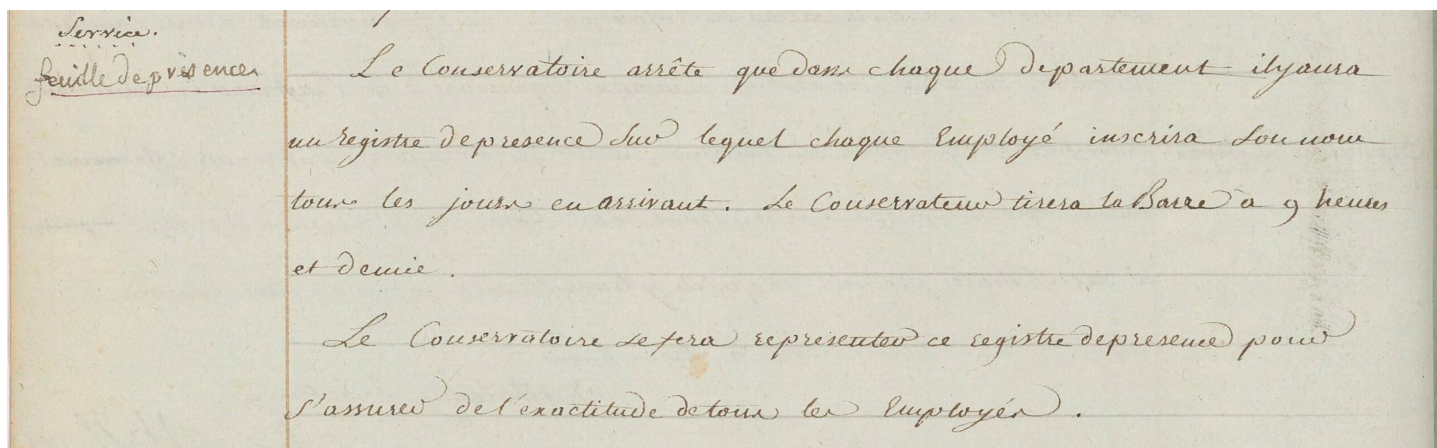 Service.
feuille de présence
Le Conservatoire arrête que dans chaque département il y aura
un registre de presence sur lequel chaque Employé inscrira son nom
tous les jours en arrivant. Le Conservateur tirera la Barre à 9 heures
et demie.
Le Conservatoire se fera representer ce registre de presence pour
s'assurer de l'exactitude de tous les Employés.